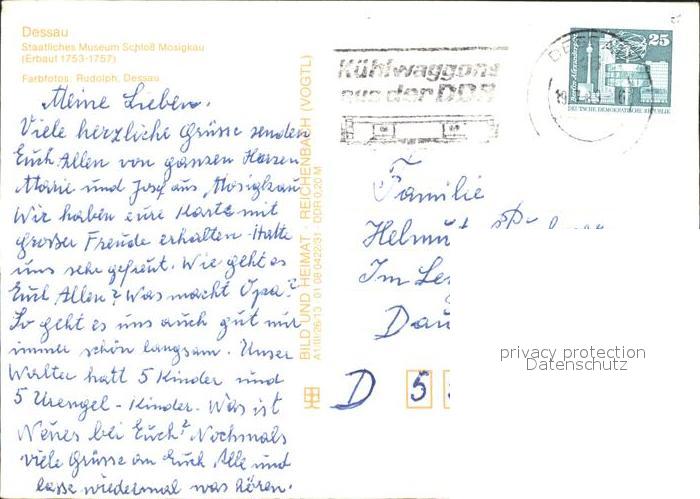 Dessau
Staatliches Museum Schloß Mosigkau
(Erbaut 1753-1757)
Farbfotos: Rudolph, Dessau
Meine Lieben.
Viele herzliche Grüsse senden
Euch Allen von ganzen Herzen
Marie und Josef aus Mosigkau
Wir haben eure Karte mit
großer Freude erhalten Hatte
uns sehr gefreut. Wie geht es
Euch Allen? Was macht Opa?
So geht es uns auch gut nur
immer schön langsam. Unser
Walter hatt 5 Kinder und
5 Urengel-Kinder. Was ist
Neues bei Euch? Nochmals
viele Grüsse an Euch Alle und
lasse wiedermal was hören.
BILD UND HEIMAT · REICHENBACH (VOGTL)
A1/III/26/13 01 08 0422/31 DDR 0,20 M
Kühlwaggons
aus der DDR
DESSAU
25
DEUTSCHE DEMOKRATISCHE REPUBLIK
Familie
Im
D 5
privacy protection
Datenschutz